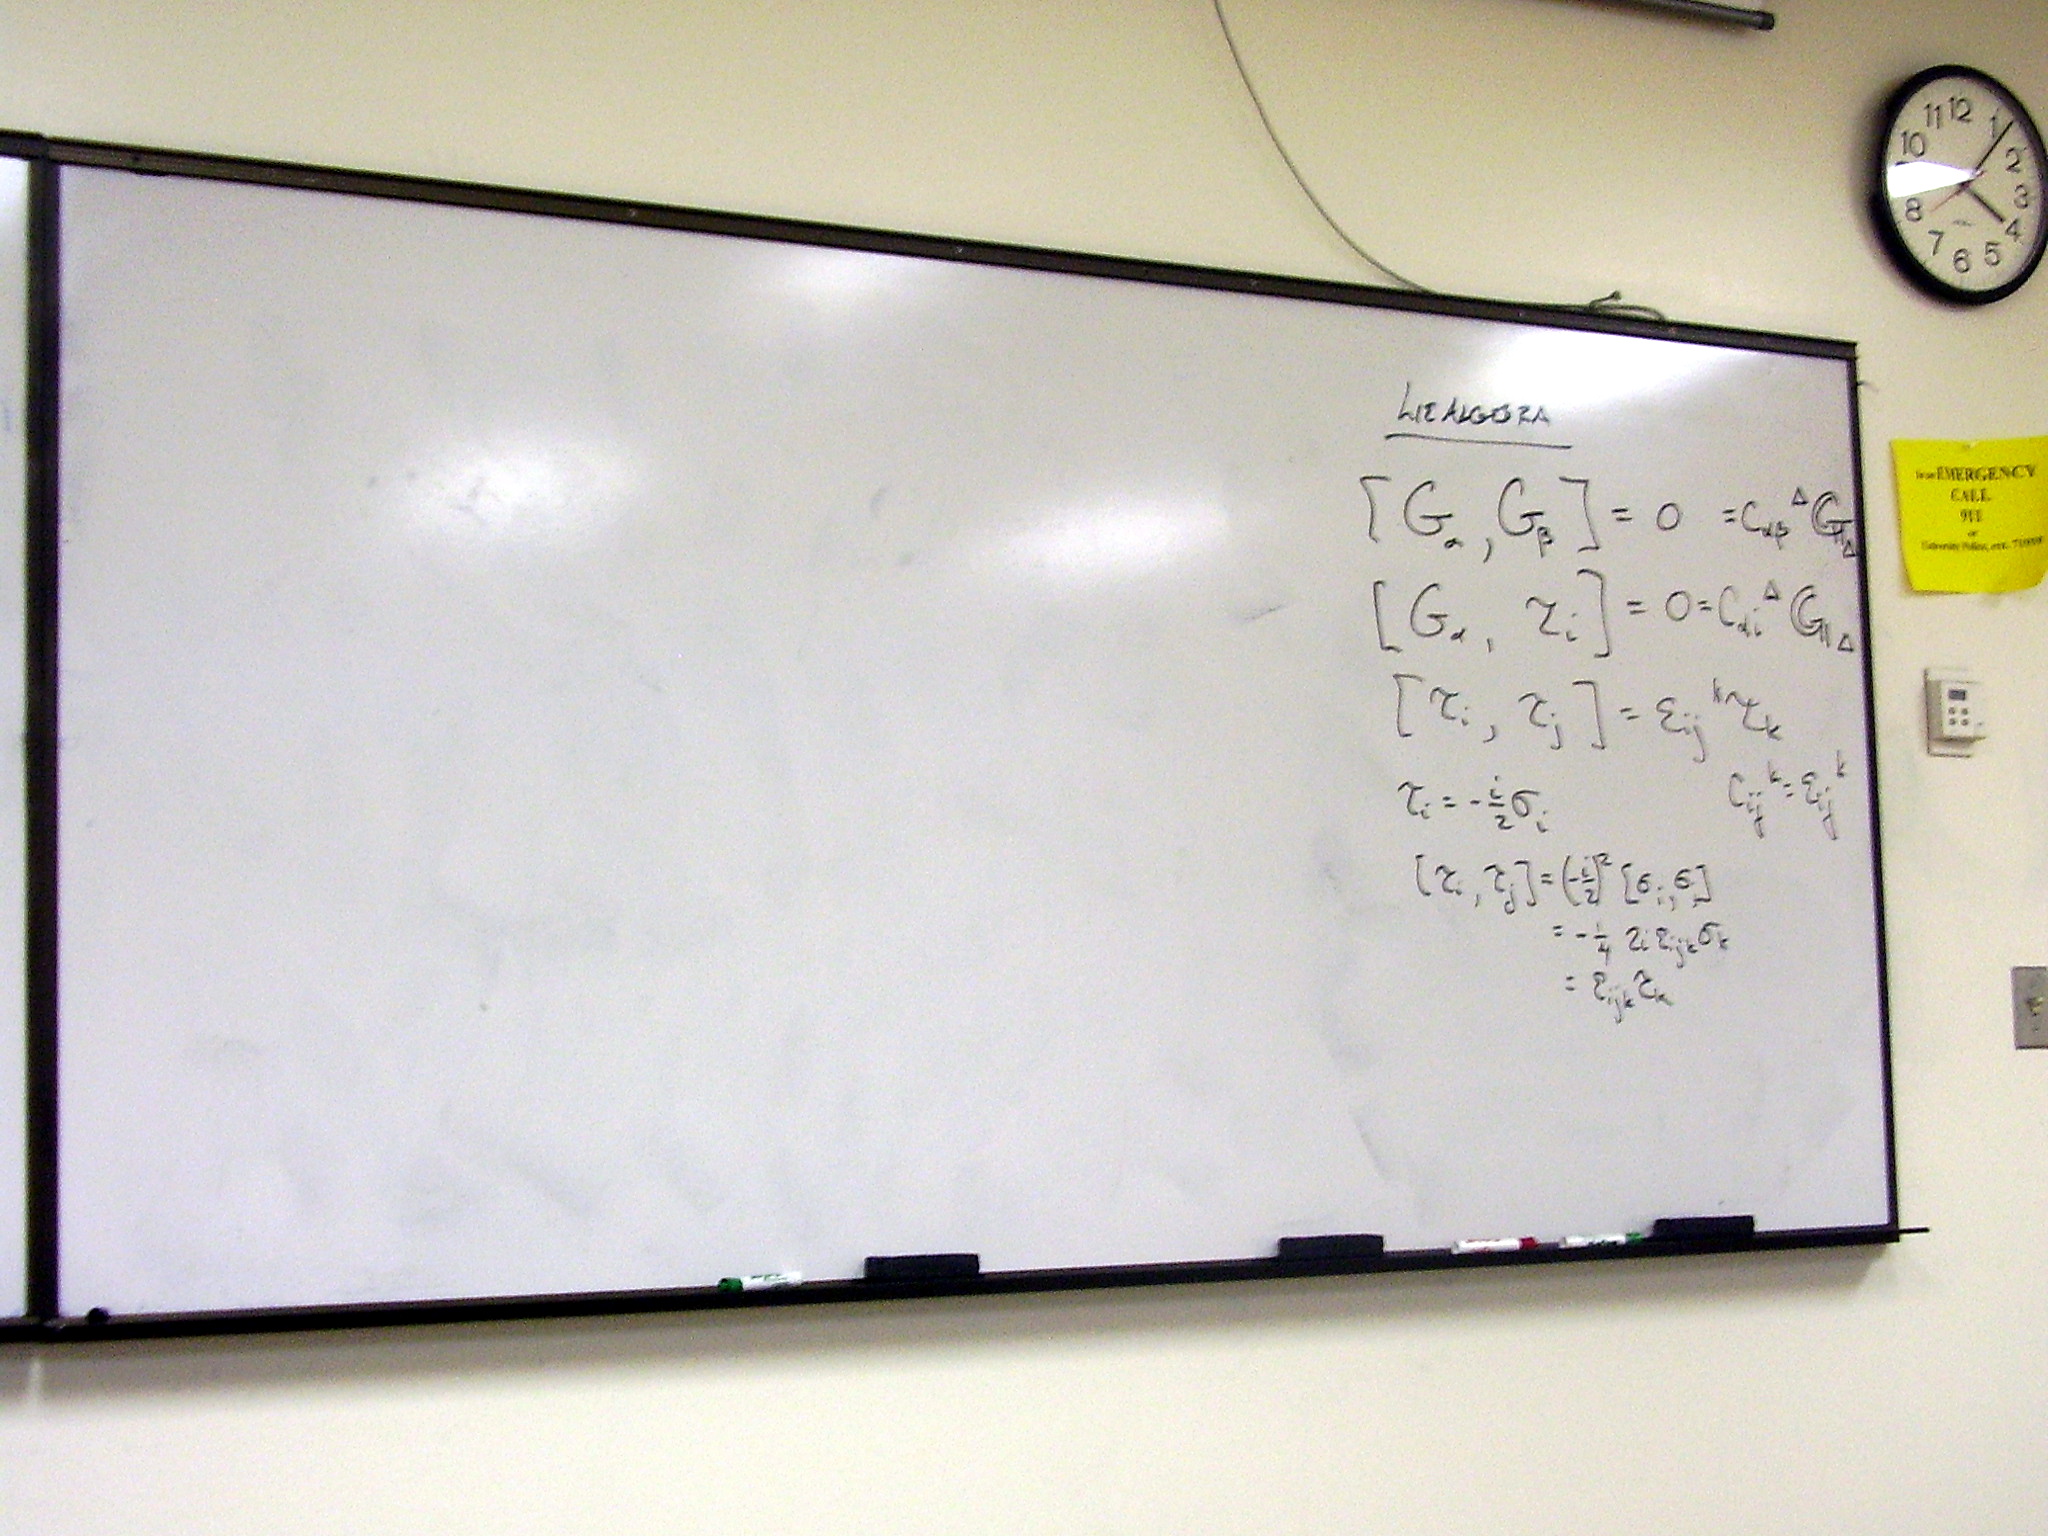 LIE ALGEBRA
[G_α, G_β] = 0 = C_αβ^Δ G_Δ
[G_α, τ_i] = 0 = C_αi^Δ G_Δ
[τ_i, τ_j] = ε_ij^k τ_k
τ_i = -i/2 σ_i
C_ij^k = ε_ij^k
[τ_i, τ_j] = (-i/2)^2 [σ_i, σ_j]
= -1/4 2i ε_ijk σ_k
= ε_ijk τ_k
11 12 1
10 2
3
8 4
7 6 5
In an EMERGENCY
CALL
911
or
University Police, ext.